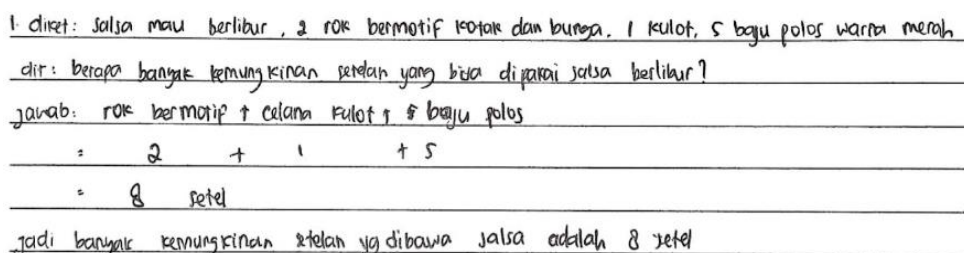 1. diket: salsa mau berlibur, 2 rok bermotif kotak dan bunga. 1 kulot, 5 baju polos warna merah
dit: berapa banyak kemungkinan setelan yang bisa dipakai salsa berlibur?
jawab: rok bermotif + celana kulot + 5 baju polos
= 2 + 1 + 5
= 8 setel
jadi banyak kemungkinan stelan yg dibawa salsa adalah 8 setel